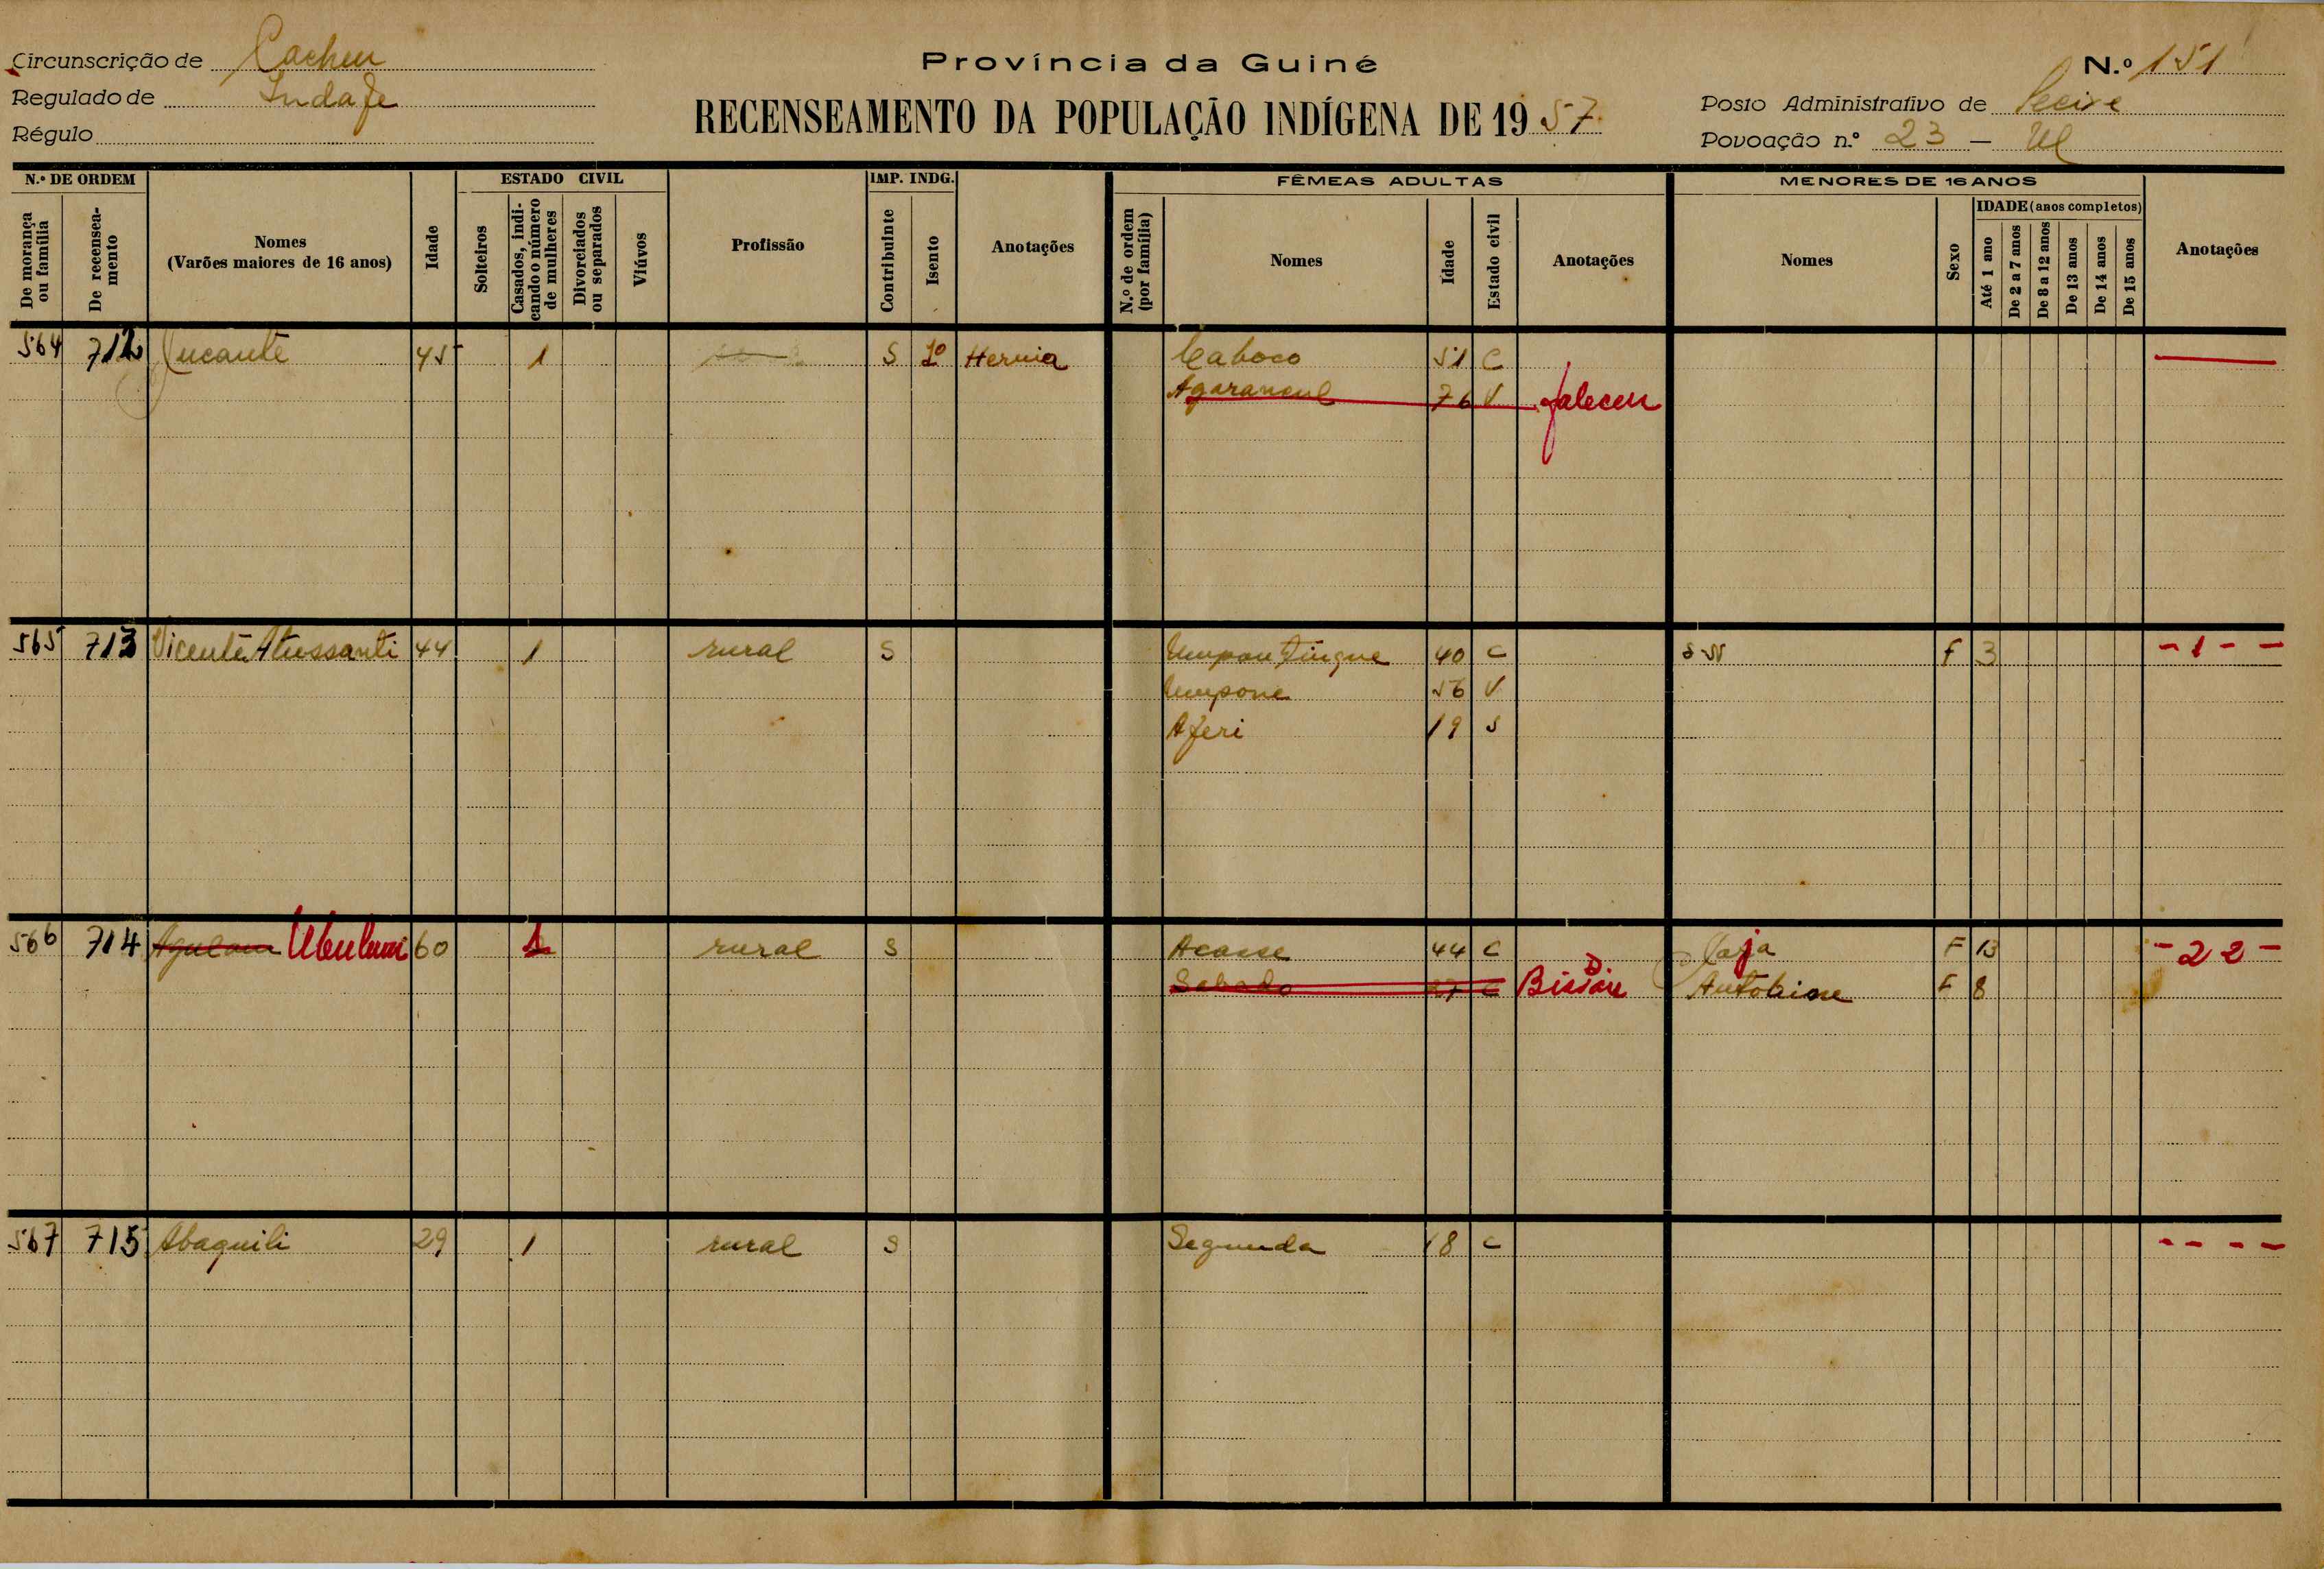 Província da Guiné
N.º 151
Circunscrição de Cacheu
Regulado de Indafe
Régulo
RECENSEAMENTO DA POPULAÇÃO INDÍGENA DE 19 57
Posto Administrativo de
Povoação n.º 23 –
N.º DE ORDEM
ESTADO CIVIL
IMP. INDG.
FÊMEAS ADULTAS
MENORES DE 16 ANOS
De morança ou família
De recenseamento
Nomes
(Varões maiores de 16 anos)
Idade
Solteiros
Casados, indicando o número de mulheres
Divorciados ou separados
Viúvos
Profissão
Contribuinte
Isento
Anotações
N.º de ordem (por família)
Nomes
Idade
Estado civil
Anotações
Nomes
Sexo
IDADE (anos completos)
Até 1 ano
De 2 a 7 anos
De 8 a 12 anos
De 13 anos
De 14 anos
De 15 anos
Anotações
564 712 45 1 S 1º Hernia Caboco 51 C
Agarancul 76 V faleceu
565 713 Vicente Atussanti 44 1 rural S 40 C S N F 3 - 1 - -
Umpone 56 V
Aferi 19 S
566 714 60 1 rural S Acasse 44 C F 13 - 2 2 -
Sabado C F 8
567 715 Abaquili 29 1 rural S Segunda 18 C - - - -